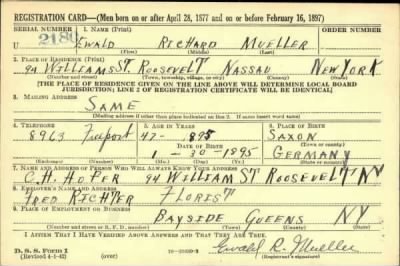 REGISTRATION CARD—(Men born on or after April 28, 1877 and on or before February 16, 1897)
SERIAL NUMBER 1. NAME (Print) ORDER NUMBER
U 2180 EWALD RICHARD MUELLER
(First) (Middle) (Last)
2. PLACE OF RESIDENCE (Print)
94 WILLIAMS ST ROOSEVELT NASSAU NEW YORK
(Number and street) (Town, township, village, or city) (County) (State)
[THE PLACE OF RESIDENCE GIVEN ON THE LINE ABOVE WILL DETERMINE LOCAL BOARD
JURISDICTION; LINE 2 OF REGISTRATION CERTIFICATE WILL BE IDENTICAL]
3. MAILING ADDRESS
SAME
[Mailing address if other than place indicated on line 2. If same insert word same]
4. TELEPHONE 5. AGE IN YEARS 6. PLACE OF BIRTH
8963 Freeport 47 - 895 SAXON
DATE OF BIRTH (Town or county)
1 - 30 - 1895 GERMANY
(Exchange) (Number) (Mo.) (Day) (Yr.) (State or country)
7. NAME AND ADDRESS OF PERSON WHO WILL ALWAYS KNOW YOUR ADDRESS
C.H. HOFER 94 WILLIAM ST ROOSEVELT NY
8. EMPLOYER'S NAME AND ADDRESS
FRED RICHTER FLORIST
9. PLACE OF EMPLOYMENT OR BUSINESS
BAYSIDE QUEENS NY
(Number and street or R. F. D. number) (Town) (County) (State)
I AFFIRM THAT I HAVE VERIFIED ABOVE ANSWERS AND THAT THEY ARE TRUE.
D. S. S. Form 1
(Revised 4-1-42) (over) Ewald R. Mueller